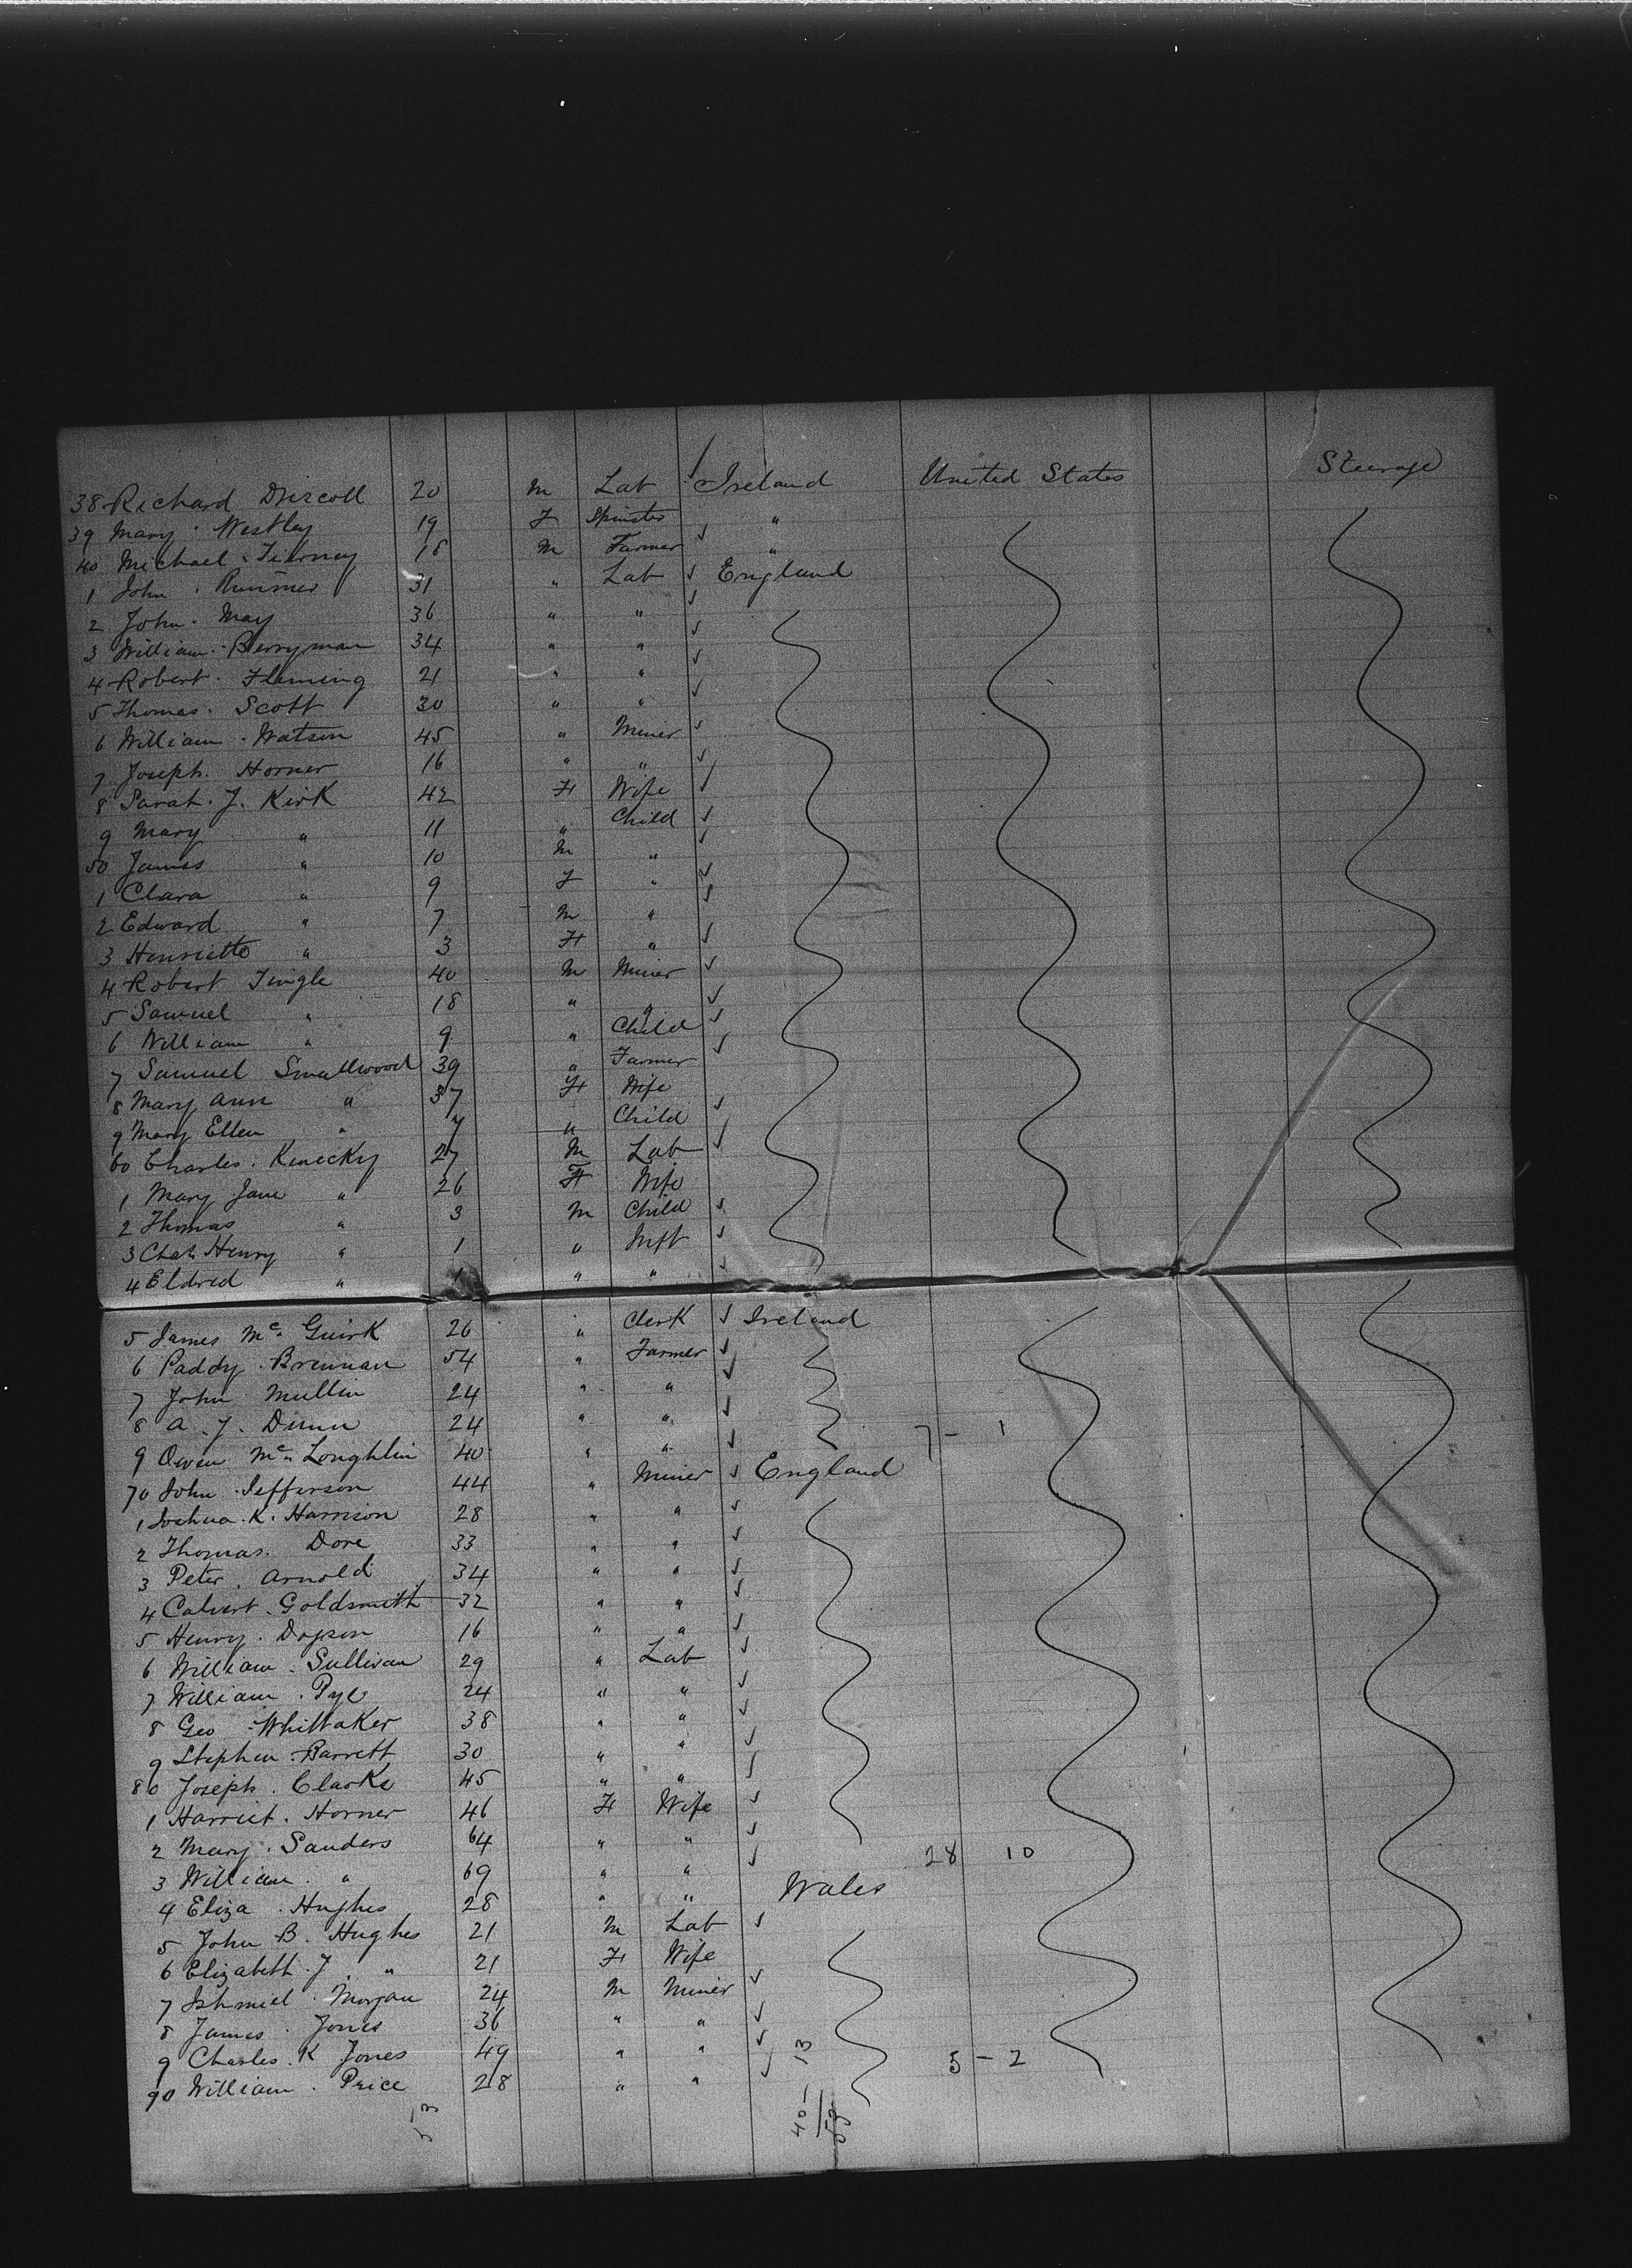 38 Richard Driscoll 20 M Lab Ireland United States Steerage
39 Mary Westley 19 F Spinster "
40 Michael Tierney 18 M Farmer "
1 John 31 " Lab England
2 John May 36 " "
3 William Berryman 34 " "
4 Robert Fleming 21 " "
5 Thomas Scott 30 " "
6 William Watson 45 " Miner
7 Joseph Horner 16 " "
8 Sarah J. Kirk 42 F Wife
9 Mary " 11 " Child
50 James " 10 M "
1 Clara " 9 F "
2 Edward " 7 M "
3 Henrietta " 3 F "
4 Robert Tingle 40 M Miner
5 Samuel " 18 " "
6 William " 9 " Child
7 Samuel Smallwood 39 " Farmer
8 Mary Ann " 37 F Wife
9 Mary Ellen " " Child
60 Charles 27 M Lab
1 Mary Jane " 26 F Wife
2 Thomas " 3 M Child
3 Chas Henry " 1 " Inft
4 Eldred " " "
5 James Mc Guirk 26 " Clerk Ireland
6 Paddy Brennan 54 " Farmer
7 John Mullin 24 " "
8 A. J. Dunn 24 " " 7 - 1
9 Owen Mc Loughlin 40 " "
70 John Jefferson 44 " Miner England
1 Joshua K. Harrison 28 " "
2 Thomas Dore 33 " "
3 Peter Arnold 34 " "
4 Calvert Goldsmith 32 " "
5 Henry Dopson 16 " "
6 William Sullivan 29 " Lab
7 William Pye 24 " "
8 Geo Whittaker 38 " "
9 Stephen Barrett 30 " "
80 Joseph Clarke 45 " "
1 Harriet Horner 46 F Wife
2 Mary Sanders 64 " "
3 William " 69 " " 28 10
4 Eliza Hughes 28 " " Wales
5 John B. Hughes 21 M Lab
6 Elizabeth J. " 21 F Wife
7 Ishmiel Morgan 24 M Miner
8 James Jones 36 " "
9 Charles K Jones 49 " " 5 - 2
90 William Price 28 " "
40 - 13
53